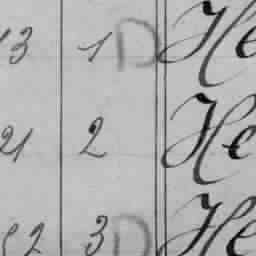 13 1 D He
21 2 He
52 3 D He